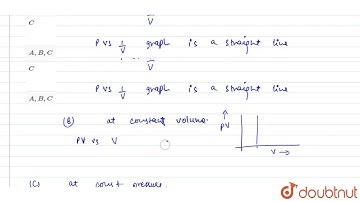 C
V
P vs 1/V graph is a straight line
A, B, C
C
V
P vs 1/V graph is a straight line
A, B, C
(B) at constant volume.
PV
PV vs V
V →
(C) at const pressure.
doubtnut